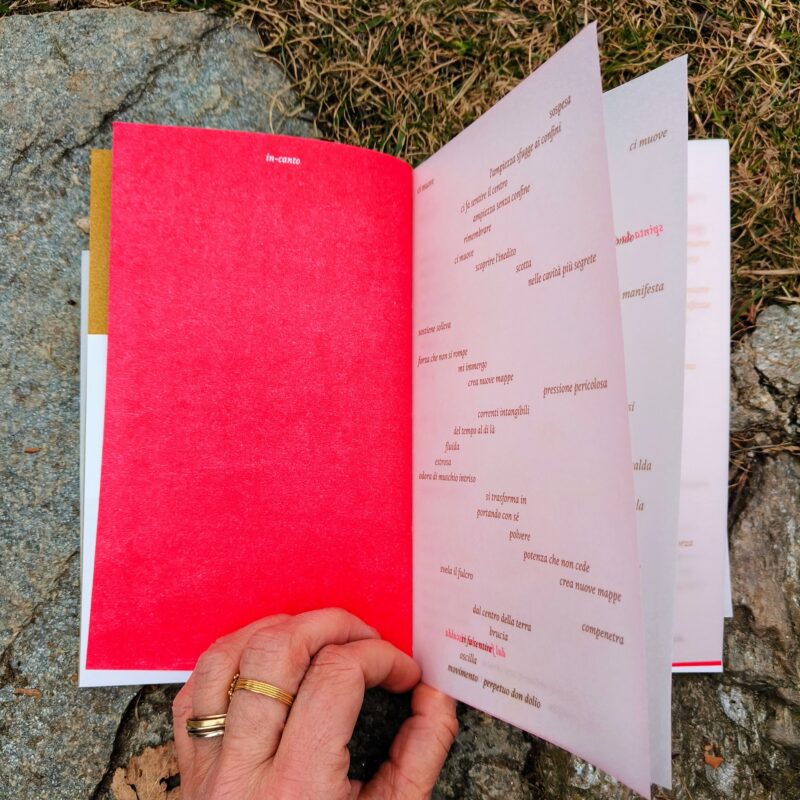 in-canto
sospesa
ci muove
l'ampiezza sfugge ai confini
ci fa sentire il centro
ampiezza senza confine
rimembrare
ci muove
scoprire l'inedito
scotta
nelle cavità più segrete
sostiene solleva
forza che non si rompe
mi immergo
crea nuove mappe
pressione pericolosa
correnti intangibili
del tempo al di là
fluida
estrosa
odora di muschio intriso
si trasforma in
portando con sé
polvere
potenza che non cede
svela il fulcro
crea nuove mappe
dal centro della terra
compenetra
brucia
oscilla
movimento perpetuo don dolio
ci muove
spinta
manifesta